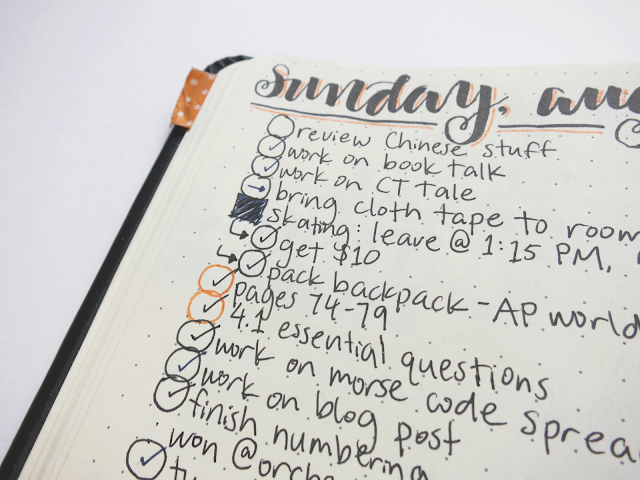 sunday, aug
review Chinese stuff
work on book talk
work on CT tale
bring cloth tape to room
skating: leave @ 1:15 PM,
get $10
pack backpack - AP world
pages 74-79
4.1 essential questions
work on morse code sprea
work on blog post
finish numbering
won @orche